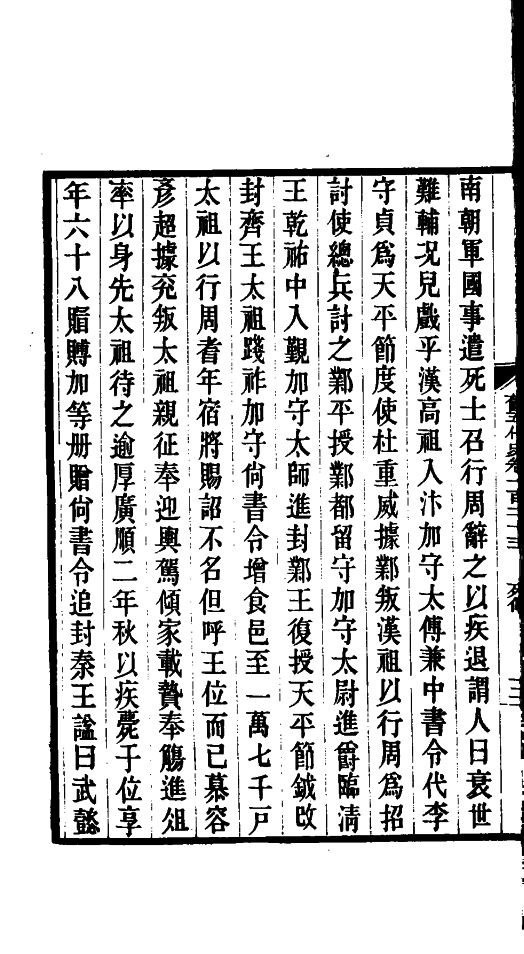 南朝軍國事遣死士召行周辭之以疾退謂人曰衰世
難輔况兒戲乎漢高祖入汴加守太傅兼中書令代李
守貞爲天平節度使杜重威據鄴叛漢祖以行周爲招
討使總兵討之鄴平授鄴都留守加守太尉進爵臨淸
王乾祐中入覲加守太師進封鄴王復授天平節鉞改
封齊王太祖踐祚加守尙書令增食邑至一萬七千戸
太祖以行周耆年宿將賜詔不名但呼王位而已慕容
彥超據兖叛太祖親征奉迎輿駕傾家載贄奉觴進俎
率以身先太祖待之逾厚廣順二年秋以疾薨于位享
年六十八賵賻加等册贈尙書令追封秦王諡曰武懿